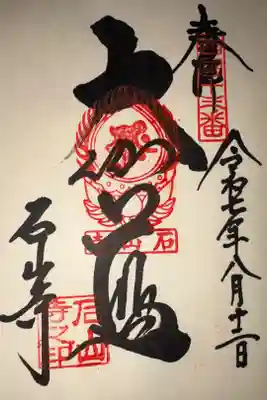 奉拝
西国十三番
令和七年八月十二日
大伽藍
石山寺
石山寺之印